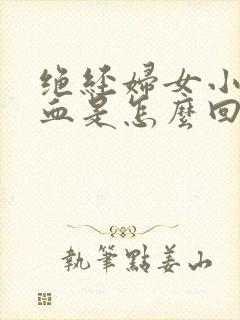 绝经婦女小
血是怎麼回
執筆點姜山